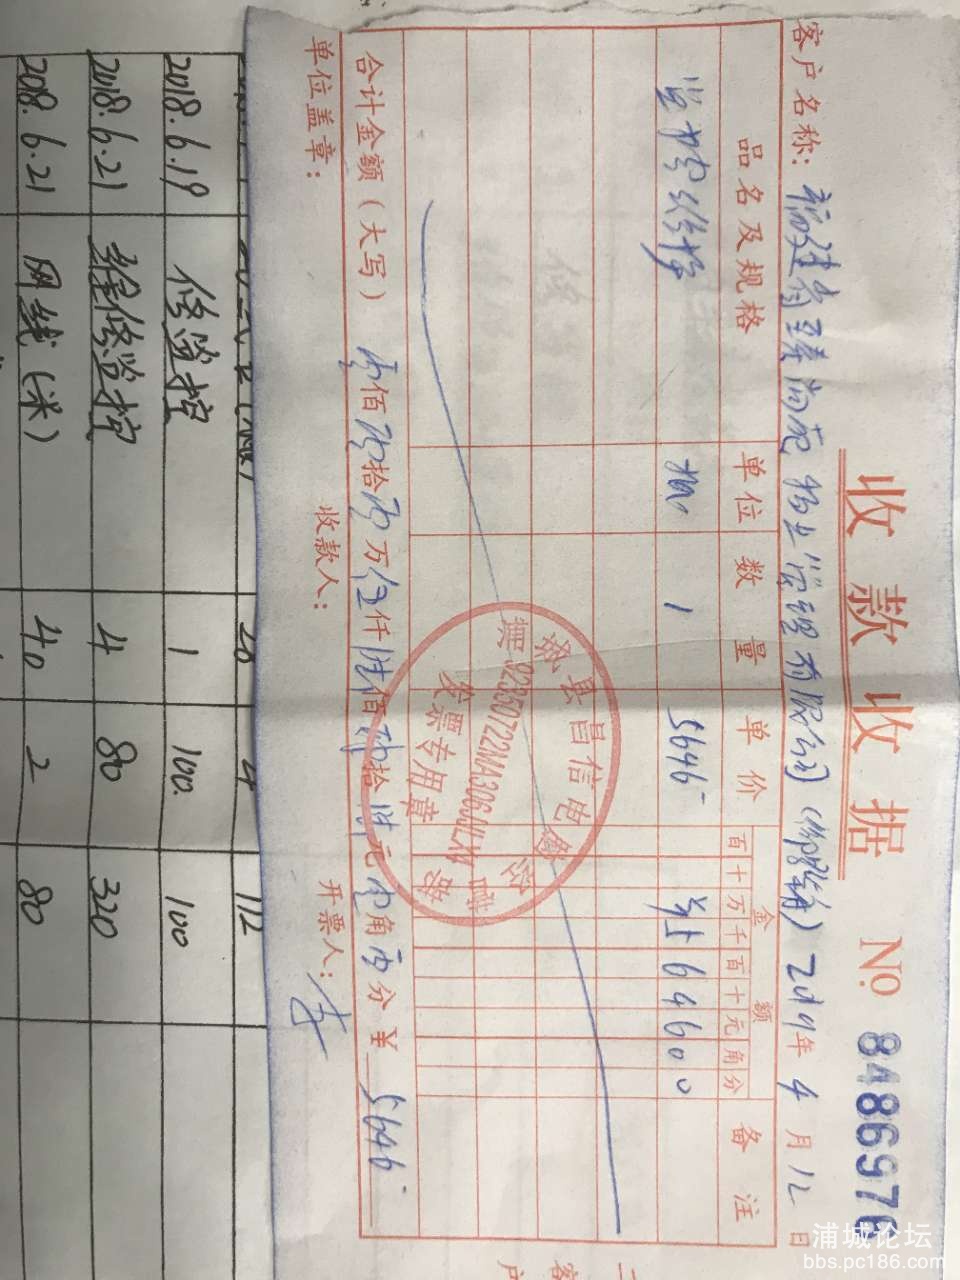 收款收据 No. 8486976
客户名称：福建省臻尚苑物业管理有限公司 2019年4月12日
品名及规格 单位 数量 单价 金额 备注
百 十 万 千 百 十 元 角 分
监控维修 批 1 5646- ¥ 5 6 4 6 0 0
合计金额（大写） 零佰零拾零万伍仟陆佰肆拾陆元零角零分 ¥ 5646-
单位盖章： 收款人： 开票人：李
县昌信电脑
92350722MA306ULLXY
发票专用章
28 4 112
2018.6.19 修监控 1 100. 100
2018.6.21 维修监控 4 80 320
2018.6.21 网线（米） 40 2 80
二
客户
浦城论坛
bbs.pc186.com